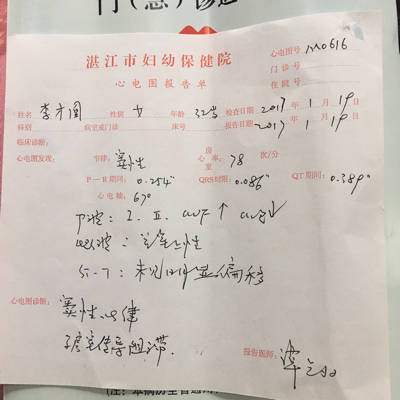 门(急)诊
湛江市妇幼保健院
心电图报告单
心电图号 1120616
门诊号
住院号
姓名 李 圆 性别 女 年龄 32岁 检查日期 2017年1月19日
科别 病室或门诊 床号 报告日期 2017年1月19日
临床诊断:
心电图发现: 节律: 窦性 心率: 房 室 78 次/分
P—R期间: 0.254" QRS时限: 0.086" QT期间: 0.389"
心电轴: 67°
P波: I、II、avF↑ avR↓
QRS波: 
S-T: 未见 偏移
心电图诊断: 窦性心律
房室传导阻滞.
报告医师: